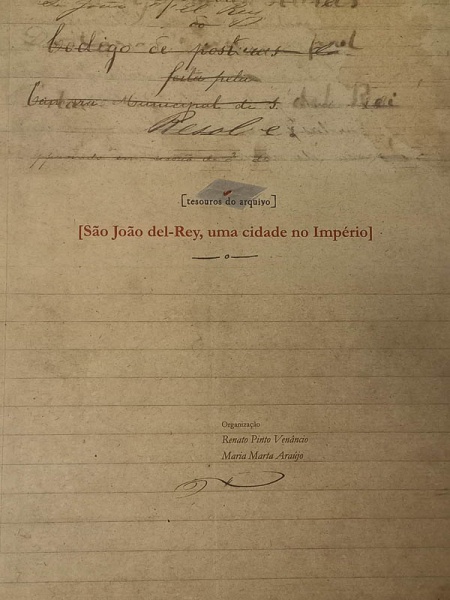 de João del Rey
do
Codigo de posturas
feito pela
Camara Municipal de S. del Rei
Resolve
[tesouros do arquivo]
[São João del-Rey, uma cidade no Império]
Organização
Renato Pinto Venâncio
Maria Marta Araújo